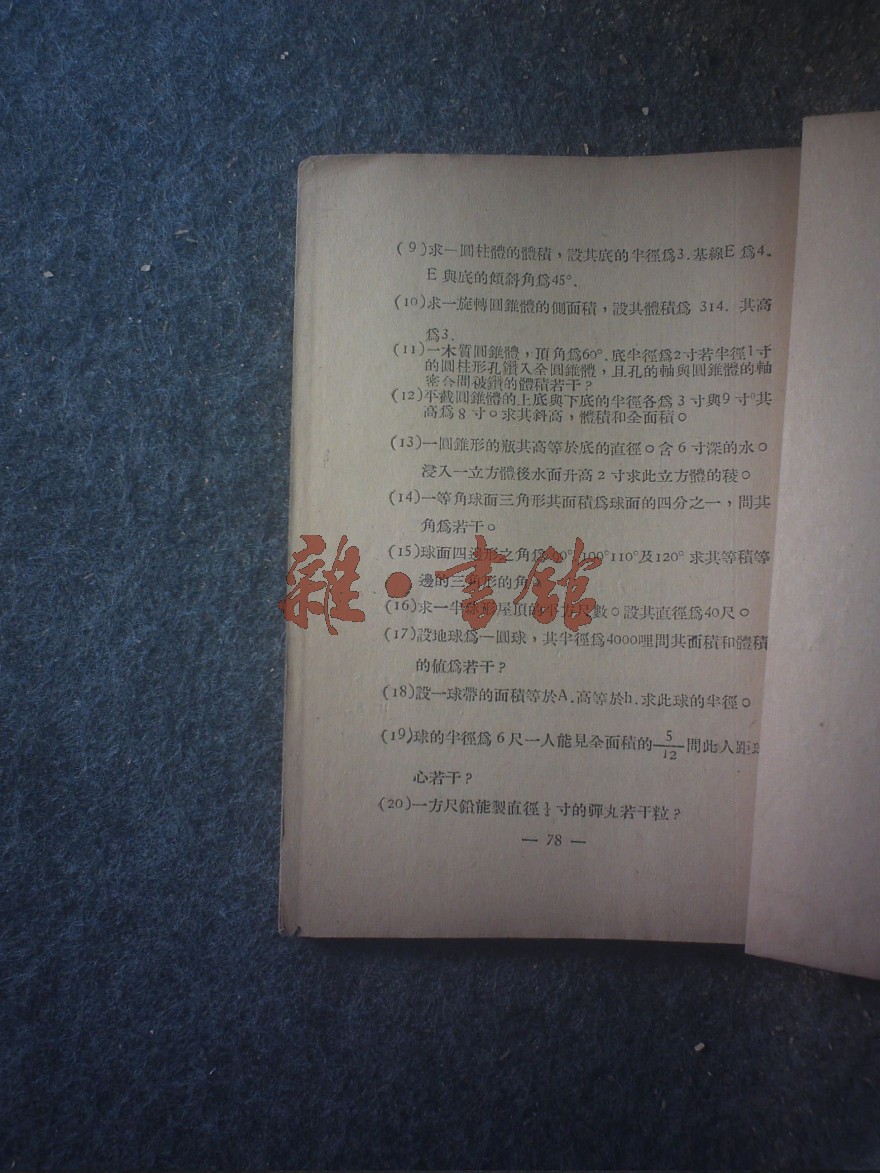 (9)求一圓柱體的體積，設其底的半徑爲3.基線E爲4.
E與底的傾斜角爲45°.
(10)求一旋轉圓錐體的側面積，設其體積爲 314. 其高
爲3.
(11)一木質圓錐體，頂角爲60°.底半徑爲2寸若半徑1寸
的圓柱形孔鑽入全圓錐體，且孔的軸與圓錐體的軸
密合間被鑽的體積若干？
(12)平截圓錐體的上底與下底的半徑各爲3寸與9寸。其
高爲8寸。求其斜高，體積和全面積。
(13)一圓錐形的瓶其高等於底的直徑。含6寸深的水。
浸入一立方體後水面升高2寸求此立方體的稜。
(14)一等角球面三角形其面積爲球面的四分之一，問其
角爲若干。
(15)球面四邊形之角爲 100°110°及120° 求其等積等
邊的三角形的角。
(16)求一半 屋頂的 方尺數。設其直徑爲40尺。
(17)設地球爲一圓球，其半徑爲4000哩問其面積和體積
的值爲若干？
(18)設一球帶的面積等於A.高等於h.求此球的半徑。
(19)球的半徑爲6尺一人能見全面積的 5/12 問此人距
心若干？
(20)一方尺鉛能製直徑¼寸的彈丸若干粒？
— 78 —
雜·書館